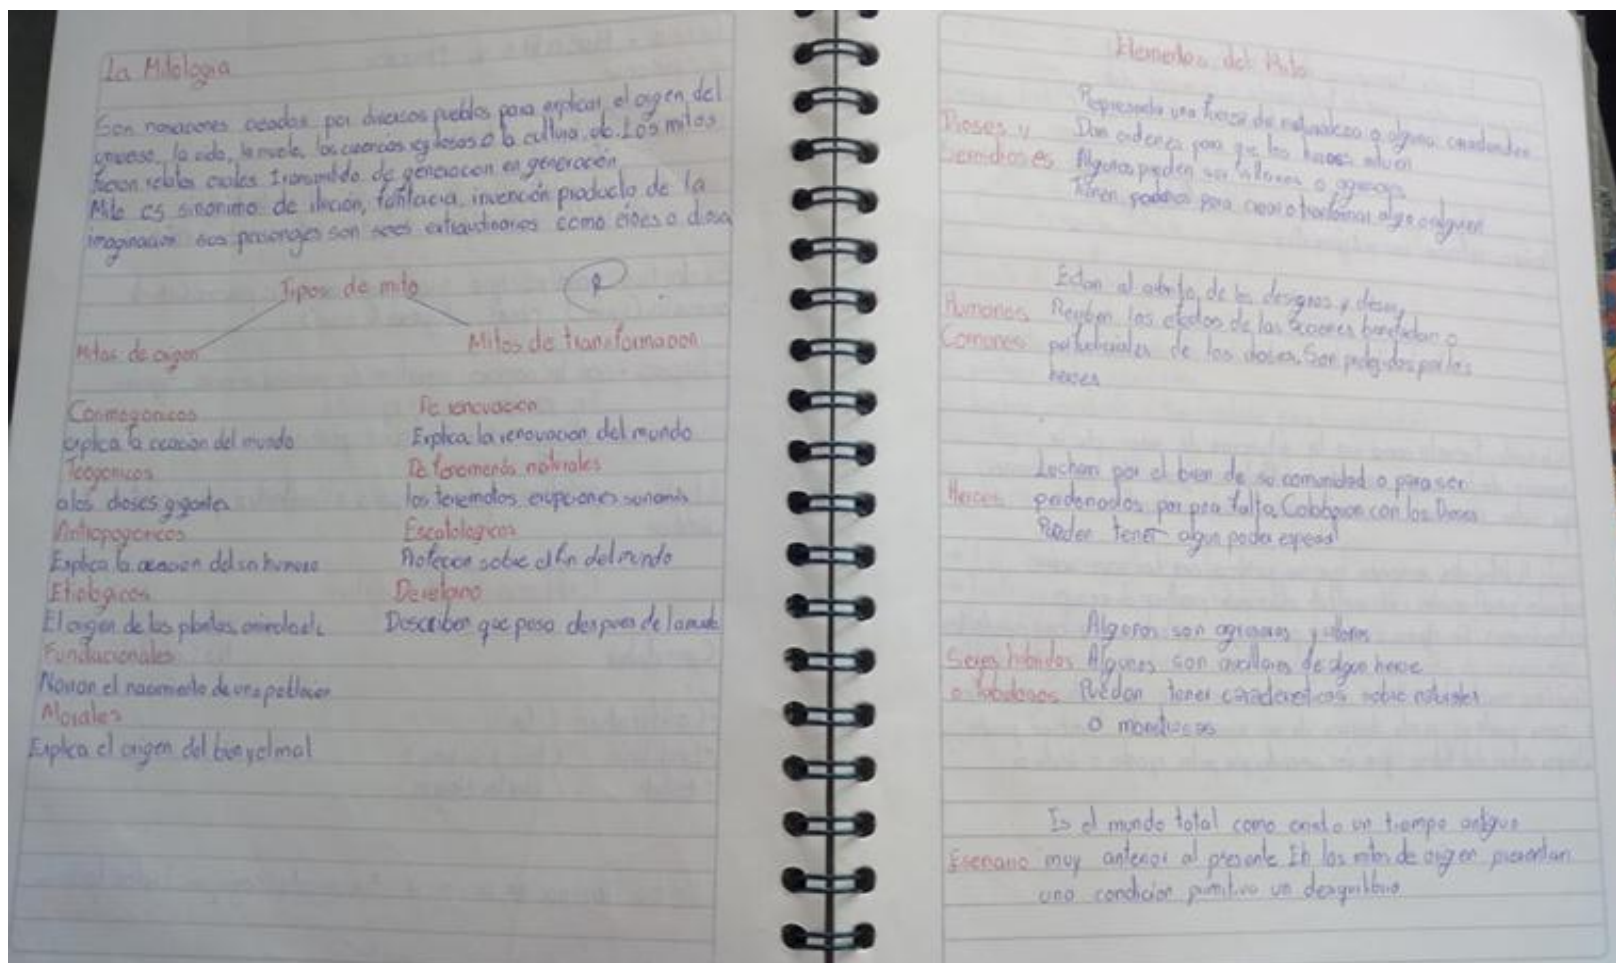 La Mitologia
Son narraciones creadas por diversos pueblos para explicar el origen del
universo, la vida, la muerte, las creencias religiosas o la cultura, etc. Los mitos
fueron relatos orales transmitido de generacion en generación
Mito es sinonimo de ilucion, fantacia, invención producto de la
imaginacion sus personges son seres extraudinarios como eroes o diosa
Tipos de mito
Mitos de origen
Mitos de transformacion
Cosmogonicos
explica la creacion del mundo
Teogonicos
a los dioses gigantes
Antropogonicos
Explica la creacion del ser humano
Etiologicos
El origen de las plantas, animales etc
Fundacionales
Narran el nacimiento de una poblacion
Morales
Explica el origen del bien y el mal
De renovacion
Explica la renovacion del mundo
De fenomenos naturales
los terremotos erupciones sunamis
Escatologicos
Profecian sobre el fin del mundo
Describen que pasa despues de la muerte
Elementos del Mito
Dioses y
Semidioses
Representa una fuerza de naturaleza o alguna
Dan ordenes para que los heroes actuen
Algunos pueden ser villanos o agresores
Tienen poderes para crear o tranformar algo o alguien
Humanos
Comunes
Estan al arbitrio de los designos y deseos
Reciben los efectos de las acciones o
perjudiciales de los dioses. Son protegidos por los
heroes
Heroes
Luchan por el bien de su comunidad o para ser
perdonados por falta. Colaboran con los Dioses
Pueden tener algun poder especial
Seres hibridos
o fabulosos
Algunos son agresores y villanos
Algunos son auxiliares de algun heroe
Puedan tener caracteristicas sobre naturales
o
Esenario
Es el mundo total como era un tiempo antiguo
muy anterior al presente En los mitos de origen presentan
una condicion primitiva un desequilibrio